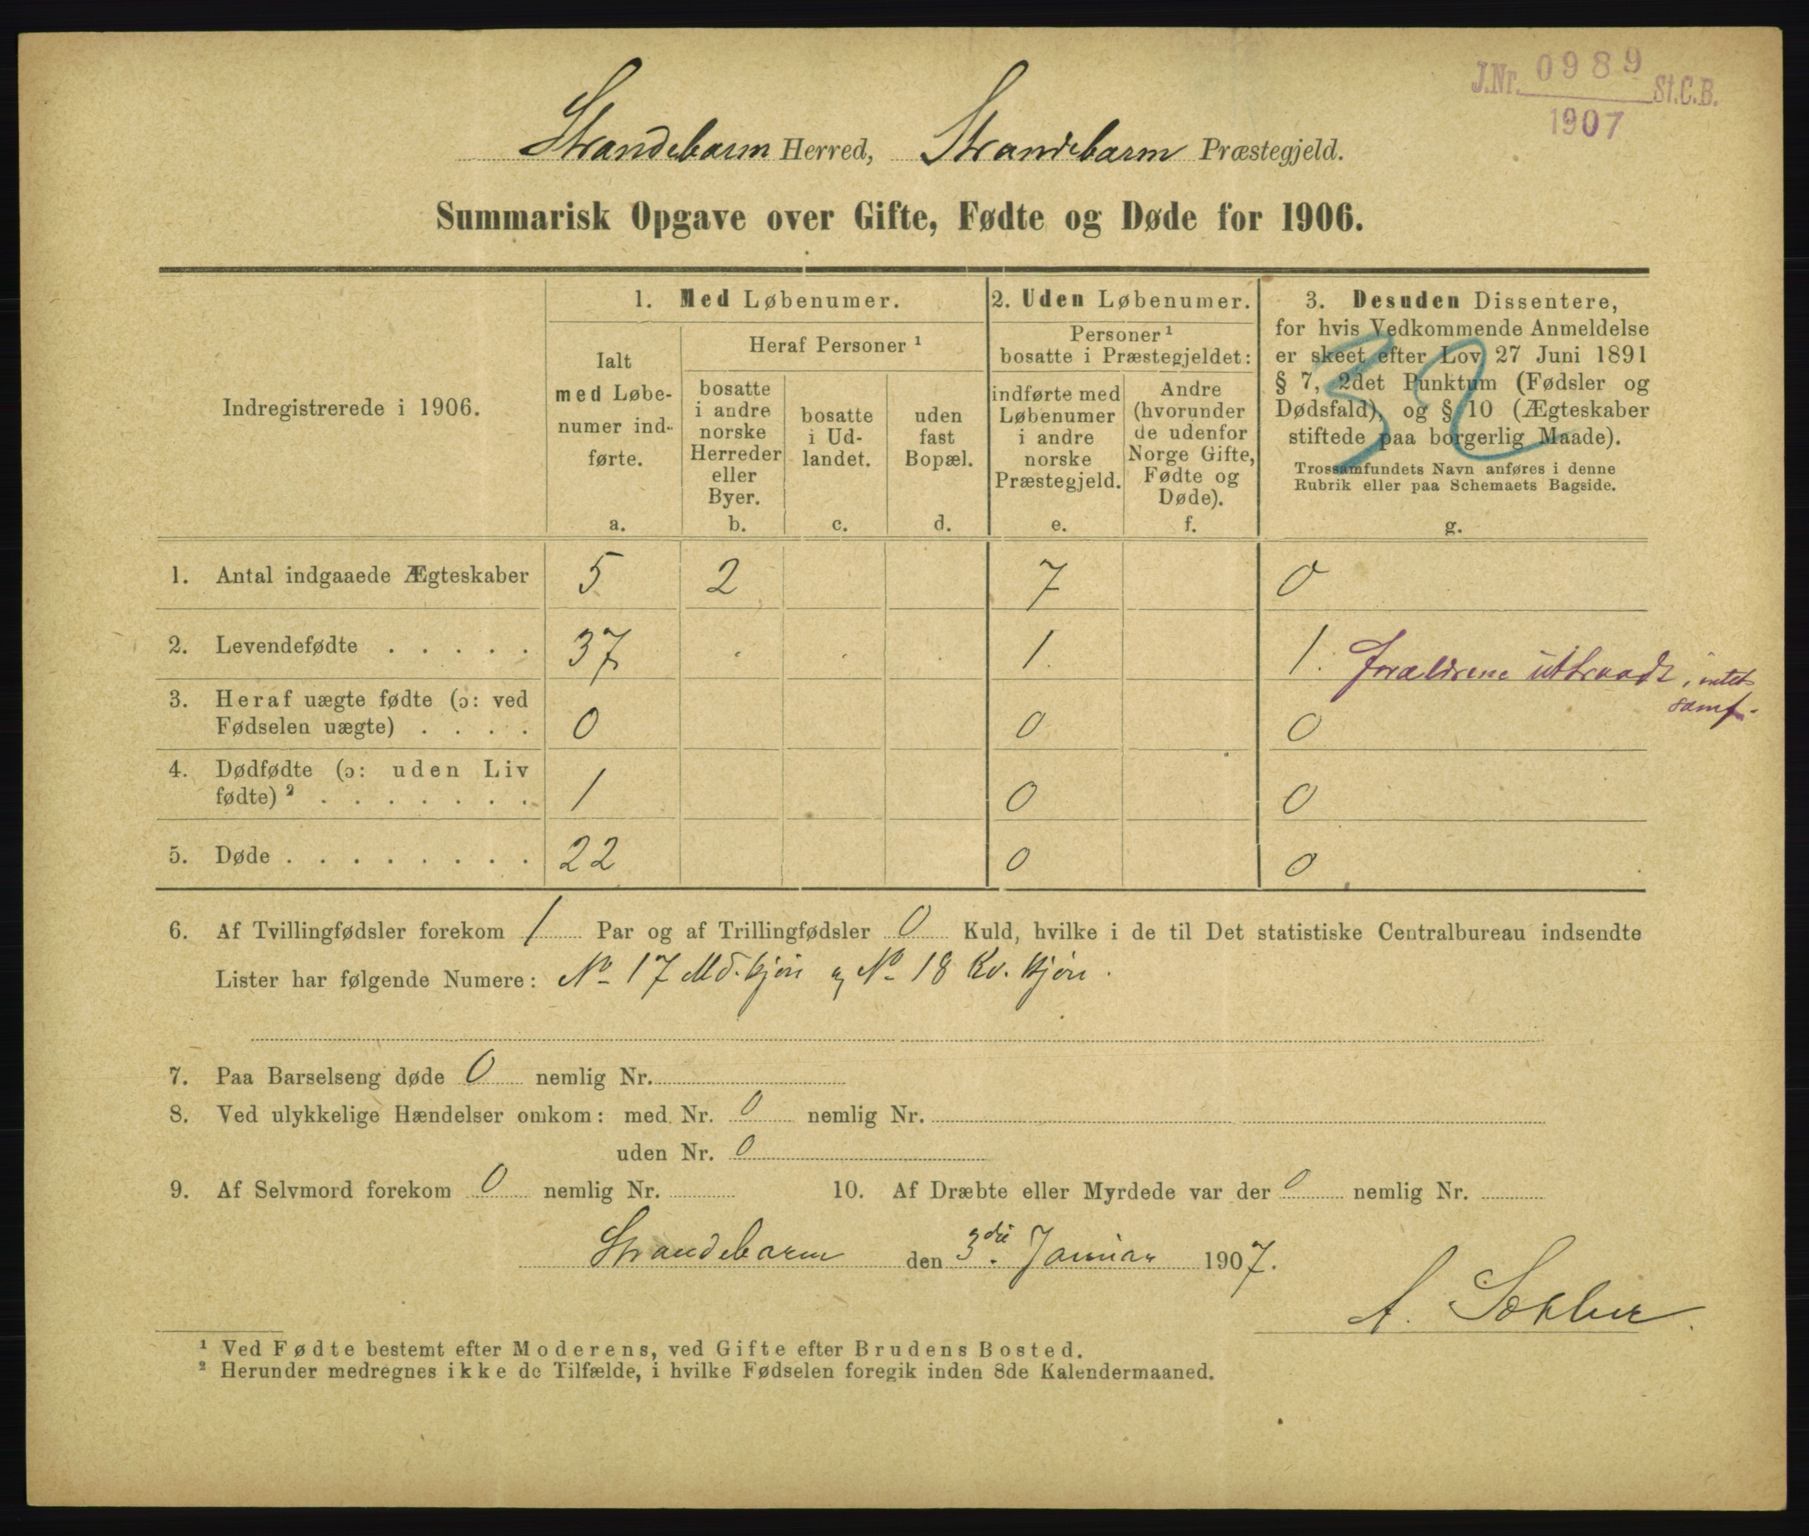 J.Nr. 0989 St.C.B.
1907
Strandebarm Herred, Strandebarm Præstegjeld.
Summarisk Opgave over Gifte, Fødte og Døde for 1906.
Indregistrerede i 1906.
1. Med Løbenumer.
Ialt
med Løbe-
numer ind-
førte.
a.
Heraf Personer ¹
bosatte
i andre
norske
Herreder
eller
Byer.
b.
bosatte
i Ud-
landet.
c.
uden
fast
Bopæl.
d.
2. Uden Løbenumer.
Personer ¹
bosatte i Præstegjeldet:
indførte med
Løbenumer
i andre
norske
Præstegjeld.
e.
Andre
(hvorunder
de udenfor
Norge Gifte,
Fødte og
Døde).
f.
3. Desuden Dissentere,
for hvis Vedkommende Anmeldelse
er skeet efter Lov 27 Juni 1891
§ 7, 2det Punktum (Fødsler og
Dødsfald), og § 10 (Ægteskaber
stiftede paa borgerlig Maade).
Trossamfundets Navn anføres i denne
Rubrik eller paa Schemaets Bagside.
g.
1. Antal indgaaede Ægteskaber 5 2 7 0
2. Levendefødte . . . . . 37 . . . 1. 1. Forældrene udtraadt, intet
samf.
3. Heraf uægte fødte (ɔ: ved
Fødselen uægte) . . . . 0 0 0
4. Dødfødte (ɔ: uden Liv
fødte) ² . . . . . . . 1 0 0
5. Døde . . . . . . . . . 22 0 0
6. Af Tvillingfødsler forekom 1 Par og af Trillingfødsler 0 Kuld, hvilke i de til Det statistiske Centralbureau indsendte
Lister har følgende Numere: No 17 Md. kjøn og No 18 Kv. kjøn.
7. Paa Barselseng døde 0 nemlig Nr.
8. Ved ulykkelige Hændelser omkom: med Nr. 0 nemlig Nr.
uden Nr. 0
9. Af Selvmord forekom 0 nemlig Nr. 10. Af Dræbte eller Myrdede var der 0 nemlig Nr.
Strandebarm den 3die Januar 1907.
A.
¹ Ved Fødte bestemt efter Moderens, ved Gifte efter Brudens Bosted.
² Herunder medregnes ikke de Tilfælde, i hvilke Fødselen foregik inden 8de Kalendermaaned.